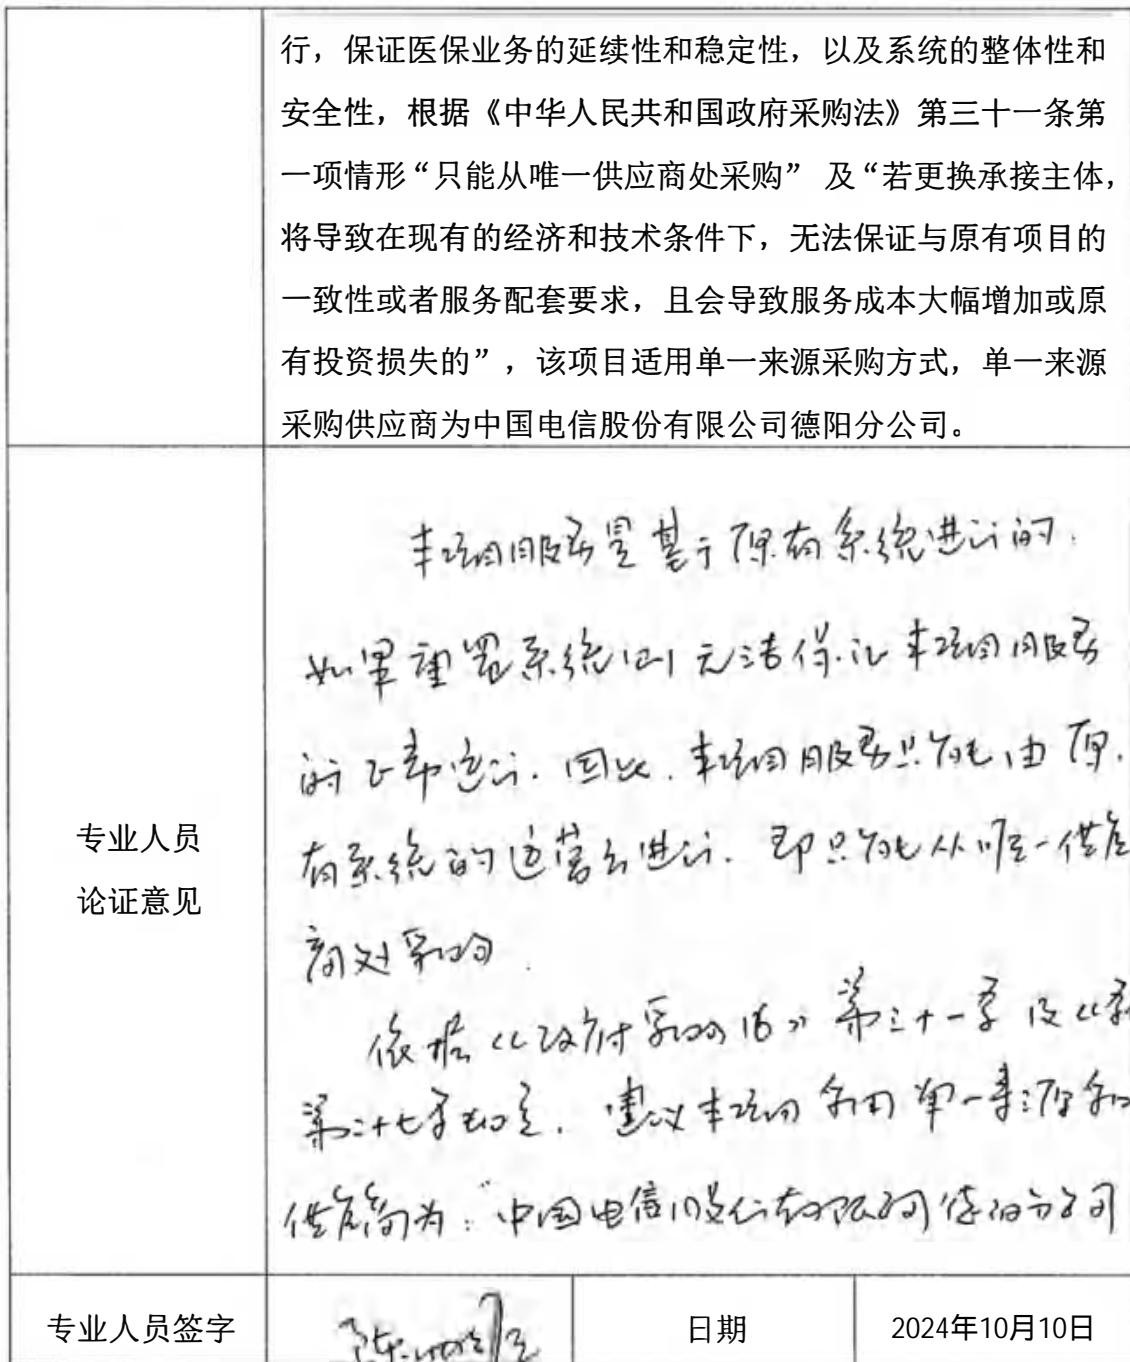 行，保证医保业务的延续性和稳定性，以及系统的整体性和
安全性，根据《中华人民共和国政府采购法》第三十一条第
一项情形“只能从唯一供应商处采购” 及“若更换承接主体，
将导致在现有的经济和技术条件下，无法保证与原有项目的
一致性或者服务配套要求，且会导致服务成本大幅增加或原
有投资损失的”，该项目适用单一来源采购方式，单一来源
采购供应商为中国电信股份有限公司德阳分公司。
专业人员
论证意见
本项目服务是基于原有系统进行的.
如果重置系统则无法保证本项目服务
的正常运行. 因此. 本项目服务只能由原.
有系统的运营商进行. 即只能从唯一供应
商处采购.
依据《政府采购法》第三十一条及《
第二十七条规定. 建议本项目采用单一来源采购
供应商为:“中国电信股份有限公司德阳分公司
专业人员签字
日期
2024年10月10日